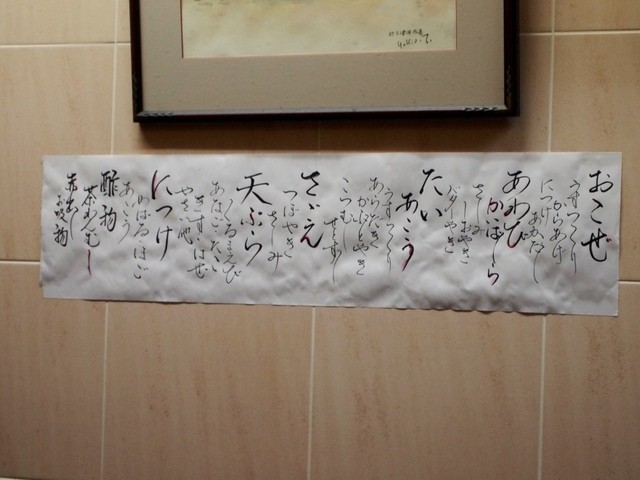 おこぜ
うすつくり
からあげ
につけ
あわび
かぶら
さしみ
しおやき
バターやき
たい
あこう
うすつくり
かぶとやき
あらだき
さゞえ
さしみ
つぼやき
天ぷら
くるまえび
あなご・たい
きす・はぜ
やさい他
につけ
めばる・ほご
あいこう
酢物
茶わんむし
赤出し
お吸物